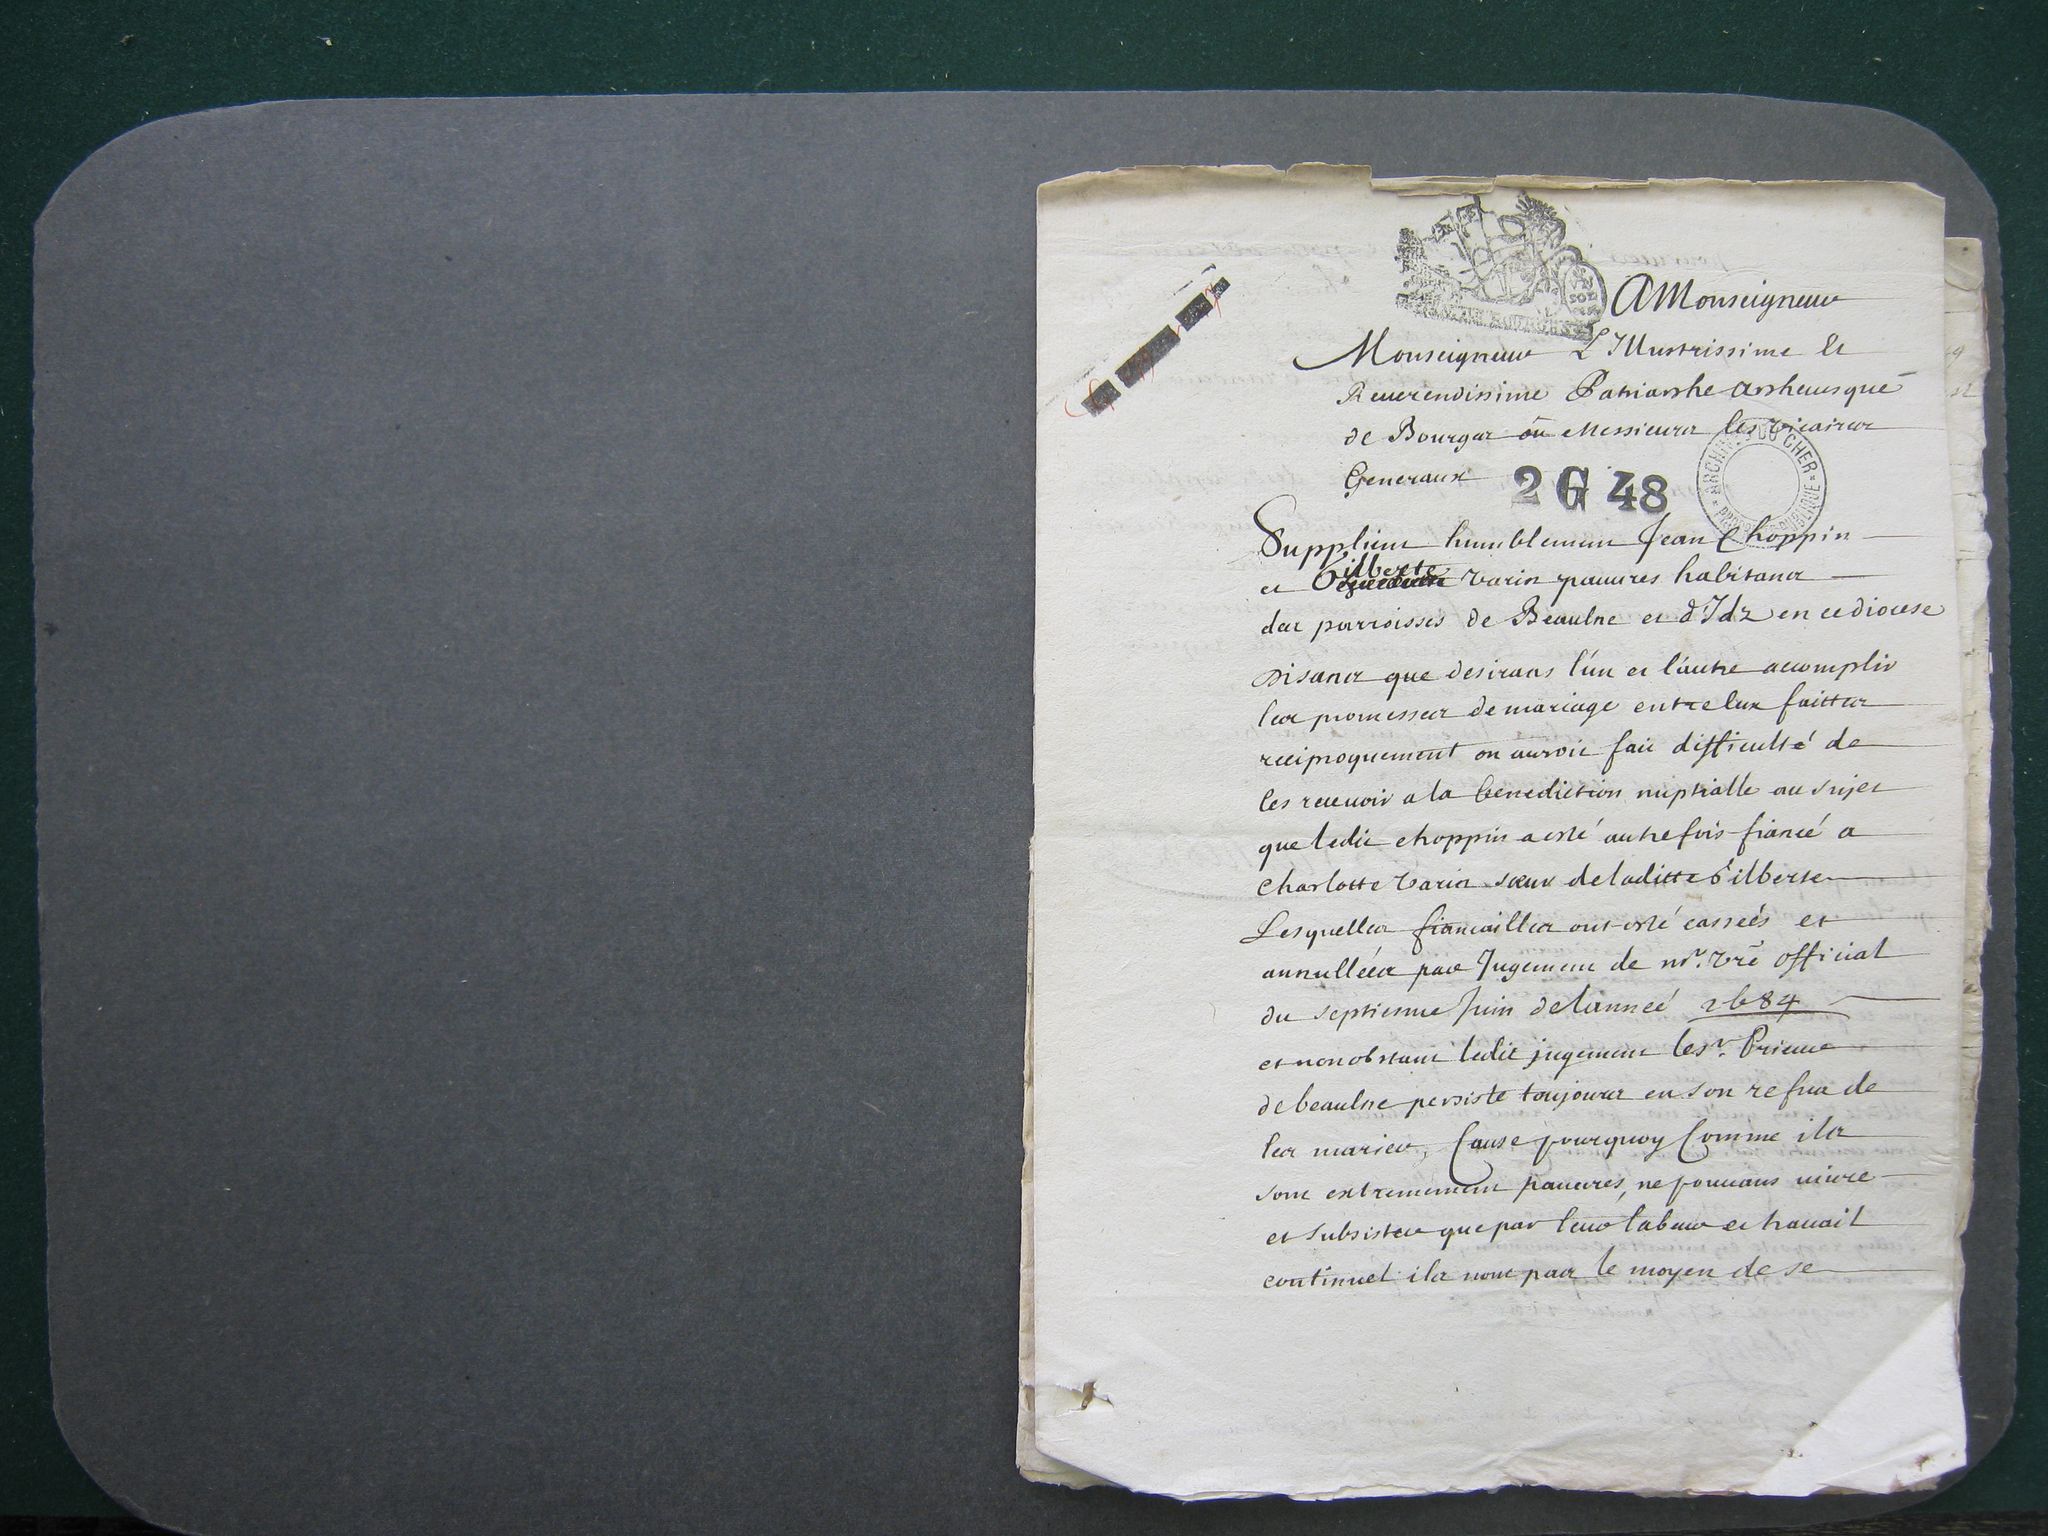 A Monseigneur
Monseigneur L'Illustrissime Et
Reuerendissime Patriarche archeuesque
de Bourges ou Messieurs les vicaires
Generaux
2 G 48
ARCHIVES DU CHER
PROPRIÉTÉ PUBLIQUE
Supplient humblement Jean Choppin
et Gilberte Varin pauures habitans
des parroisses de Beaulne et d'Idz en ce diocese
Disans que desirans l'un et l'autre accomplir
les promesses de mariage entre Eux faittes
reciproquement on auroit fait difficulté de
les receuoir a la benediction nuptialle au sujet
que ledit choppin a esté autrefois fiancé a
Charlotte Varin sœur de laditte Gilberte
Lesquelles fiancailles ont esté casseés et
annulleés par Jugement de mr. vre official
du septiesme Juin de lanneé 1684
et nonobstant ledit jugement le sr. Prieur
de beaulne persiste toujours en son refus de
les marier, Cause pourquoy Comme ils
sont extremement pauures, ne pouuans uiure
et subsister que par leur labeur et trauail
continuel ils nont pas le moyen de se